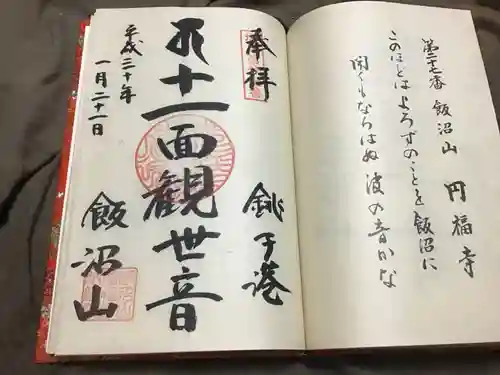 第二十七番 飯沼山 円福寺
このほとはよろずのことを飯沼に
聞くもならはぬ波の音かな
奉拝
銚子港
十一面観世音
平成三十年
一月二十一日
飯沼山